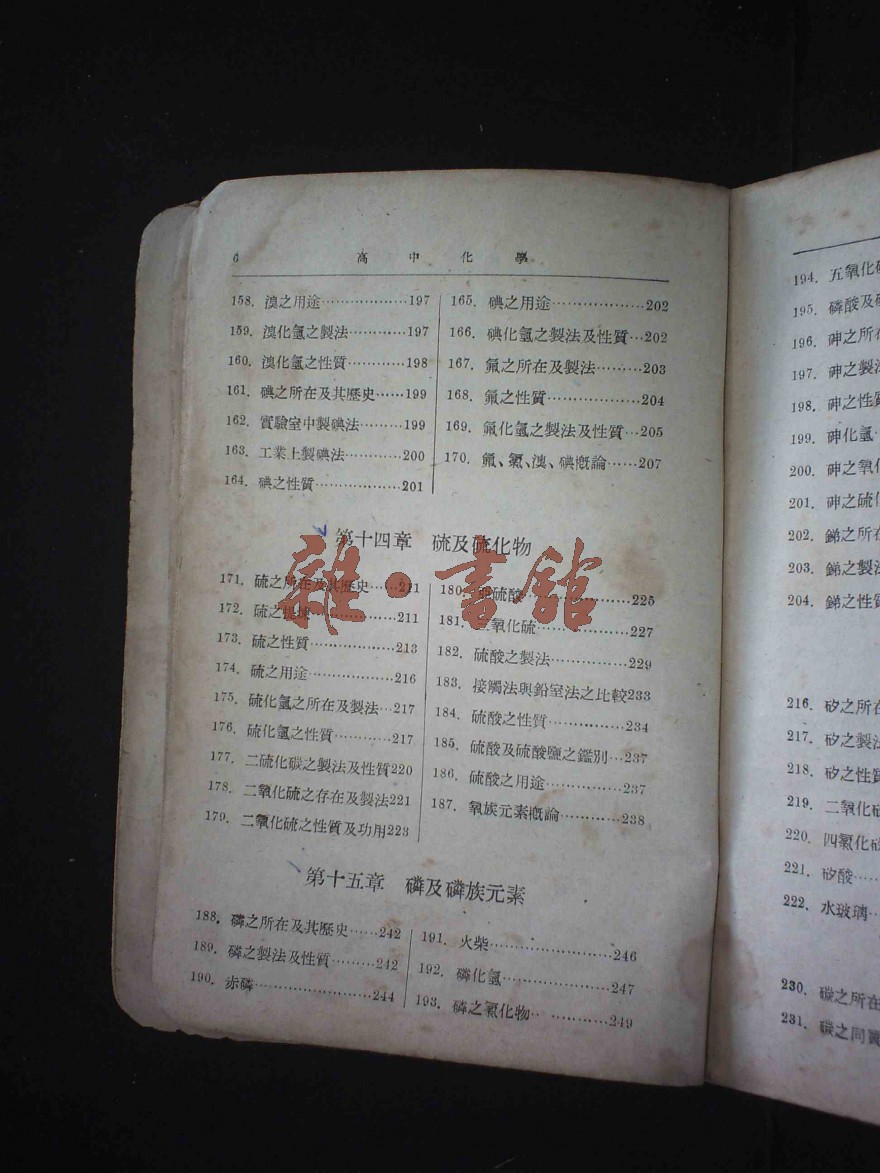 6 高中化學
158. 溴之用途………………197
159. 溴化氫之製法…………197
160. 溴化氫之性質…………198
161. 碘之所在及其歷史……199
162. 實驗室中製碘法………199
163. 工業上製碘法…………200
164. 碘之性質………………201
165. 碘之用途………………202
166. 碘化氫之製法及性質…202
167. 氟之所在及製法………203
168. 氟之性質………………204
169. 氟化氫之製法及性質…205
170. 氟、氯、溴、碘概論……207
第十四章 硫及硫化物
171. 硫之所在及其歷史……211
172. 硫之提煉………………211
173. 硫之性質………………213
174. 硫之用途………………216
175. 硫化氫之所在及製法…217
176. 硫化氫之性質…………217
177. 二硫化碳之製法及性質220
178. 二氧化硫之存在及製法221
179. 二氧化硫之性質及功用223
180. 亞硫酸…………………225
181. 三氧化硫………………227
182. 硫酸之製法……………229
183. 接觸法與鉛室法之比較233
184. 硫酸之性質……………234
185. 硫酸及硫酸鹽之鑑別…237
186. 硫酸之用途……………237
187. 氧族元素概論…………238
第十五章 磷及磷族元素
188. 磷之所在及其歷史……242
189. 磷之製法及性質………242
190. 赤磷……………………244
191. 火柴……………………246
192. 磷化氫…………………247
193. 磷之氯化物……………249
雜·書館
194. 五氧化
195. 磷酸及
196. 砷之所
197. 砷之製
198. 砷之性
199. 砷化氫
200. 砷之氧
201. 砷之硫
202. 銻之所
203. 銻之製
204. 銻之性
216. 矽之所
217. 矽之製
218. 矽之性
219. 二氧化
220. 四氯化
221. 矽酸……
222. 水玻璃…
230. 碳之所
231. 碳之同